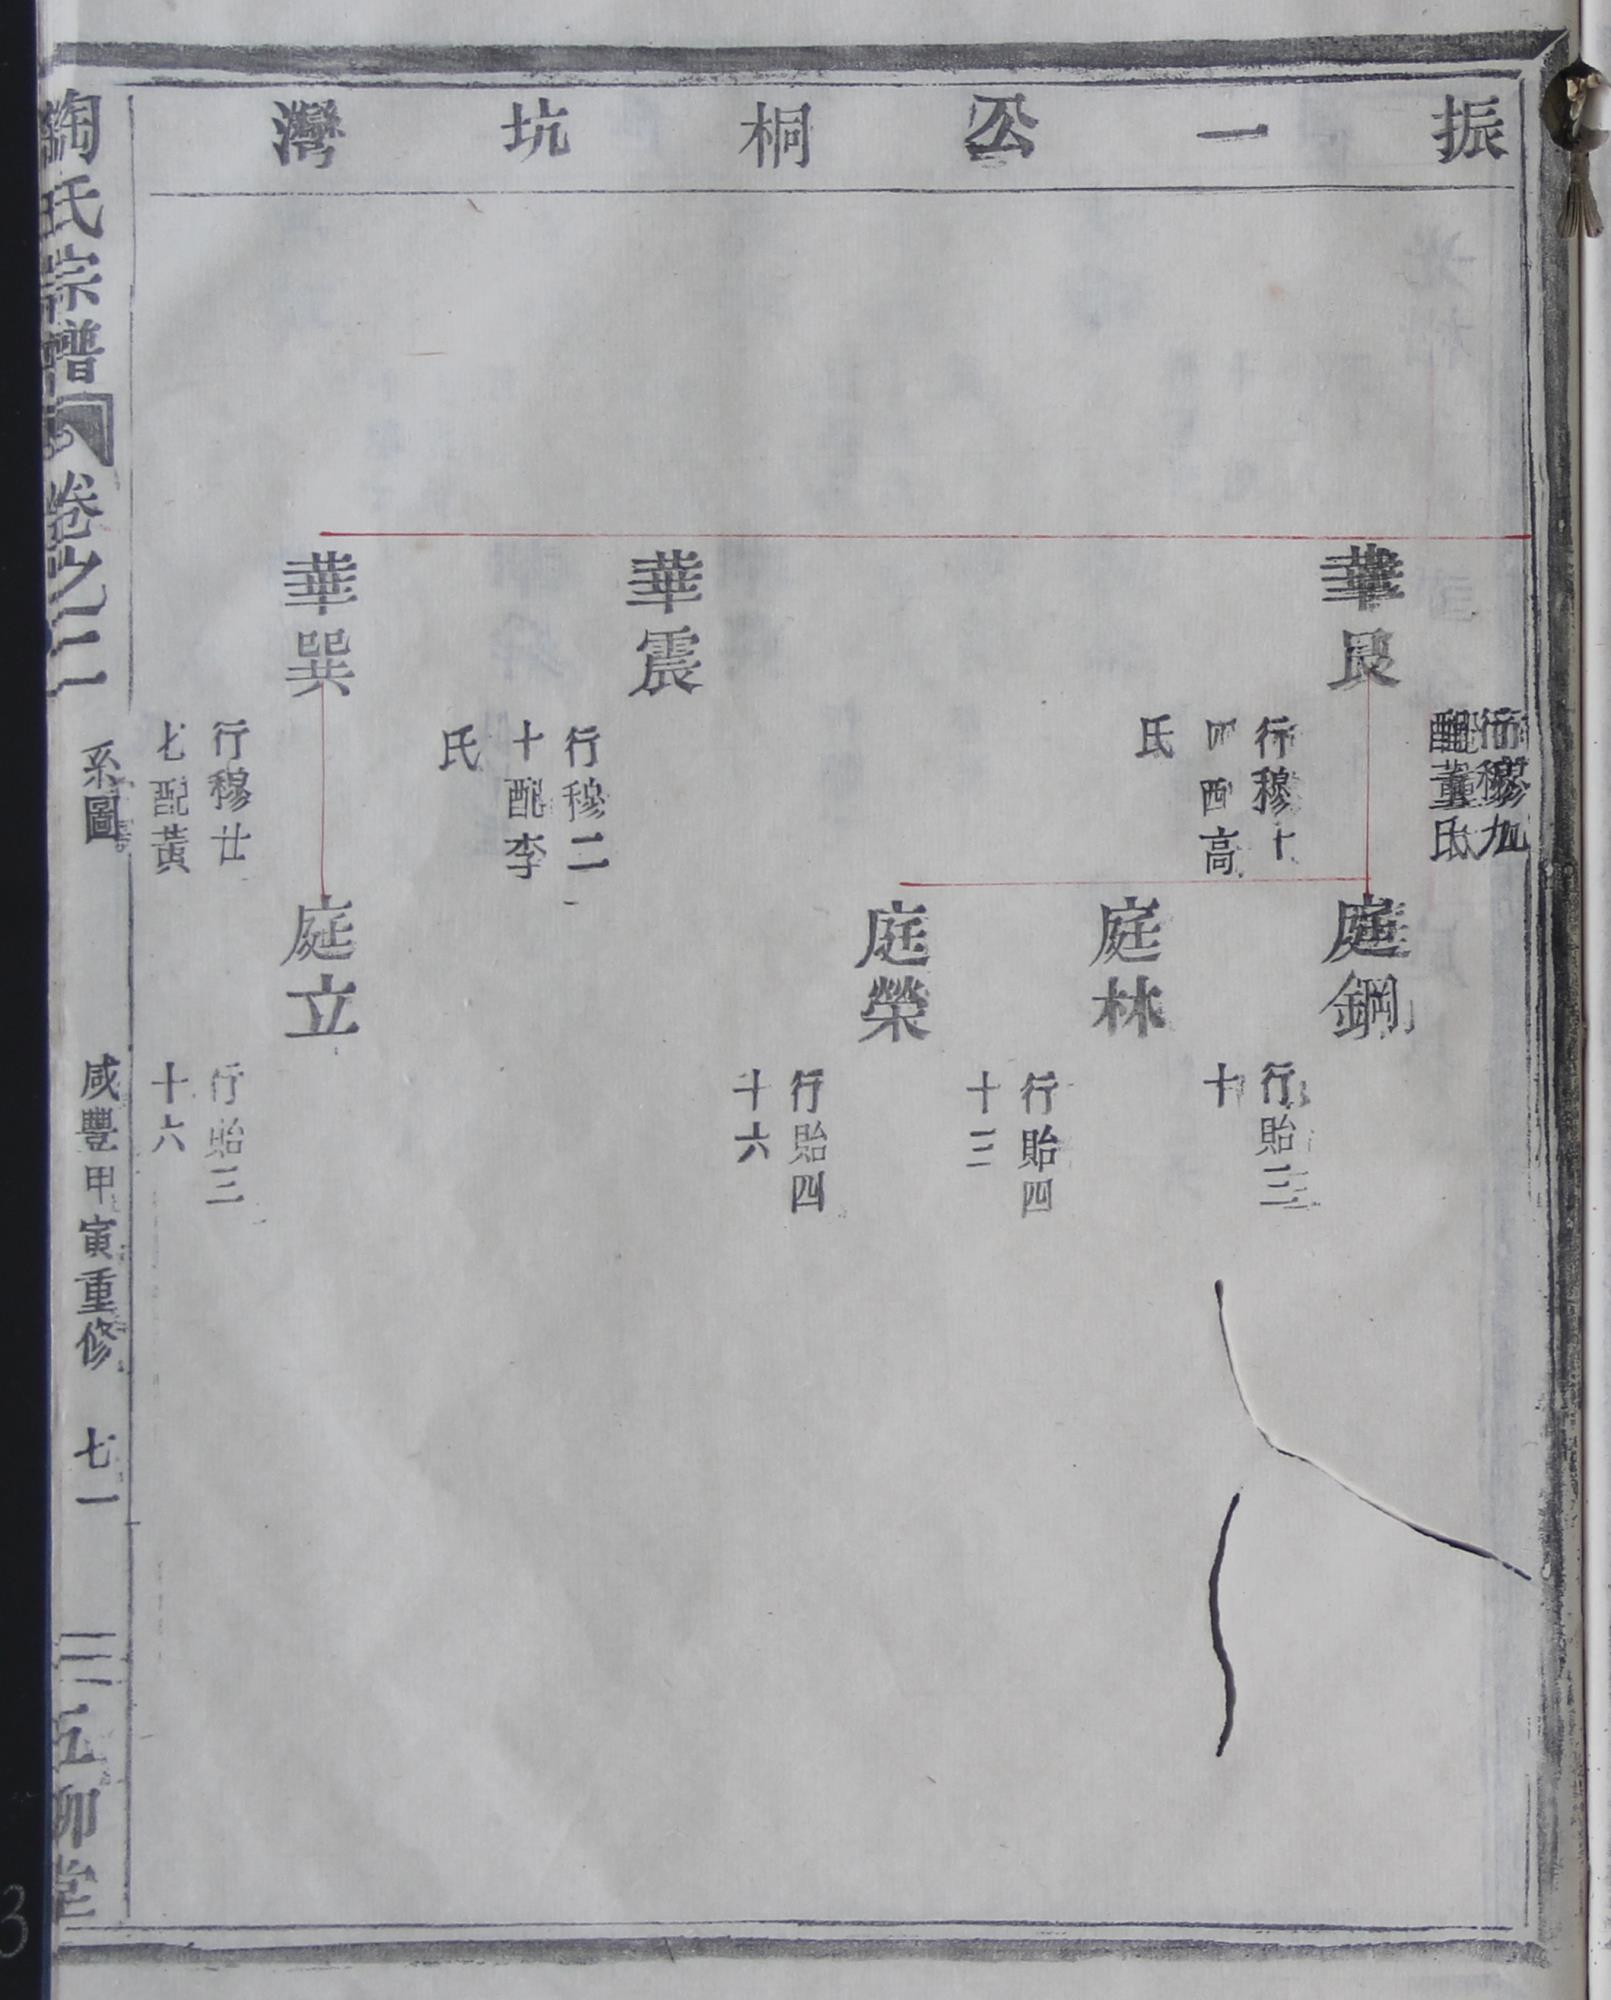 振一公桐坑灣
行穆九
配董氏
華良
行穆十
四配高
氏
庭鋼
行貽三
十
庭林
行貽四
十三
庭榮
行貽四
十六
華震
行穆二
十配李
氏
華巽
行穆廿
七配黃
庭立
行貽三
十六
陶氏宗譜
卷之二
系圖
咸豐甲寅重修
七一
五柳堂